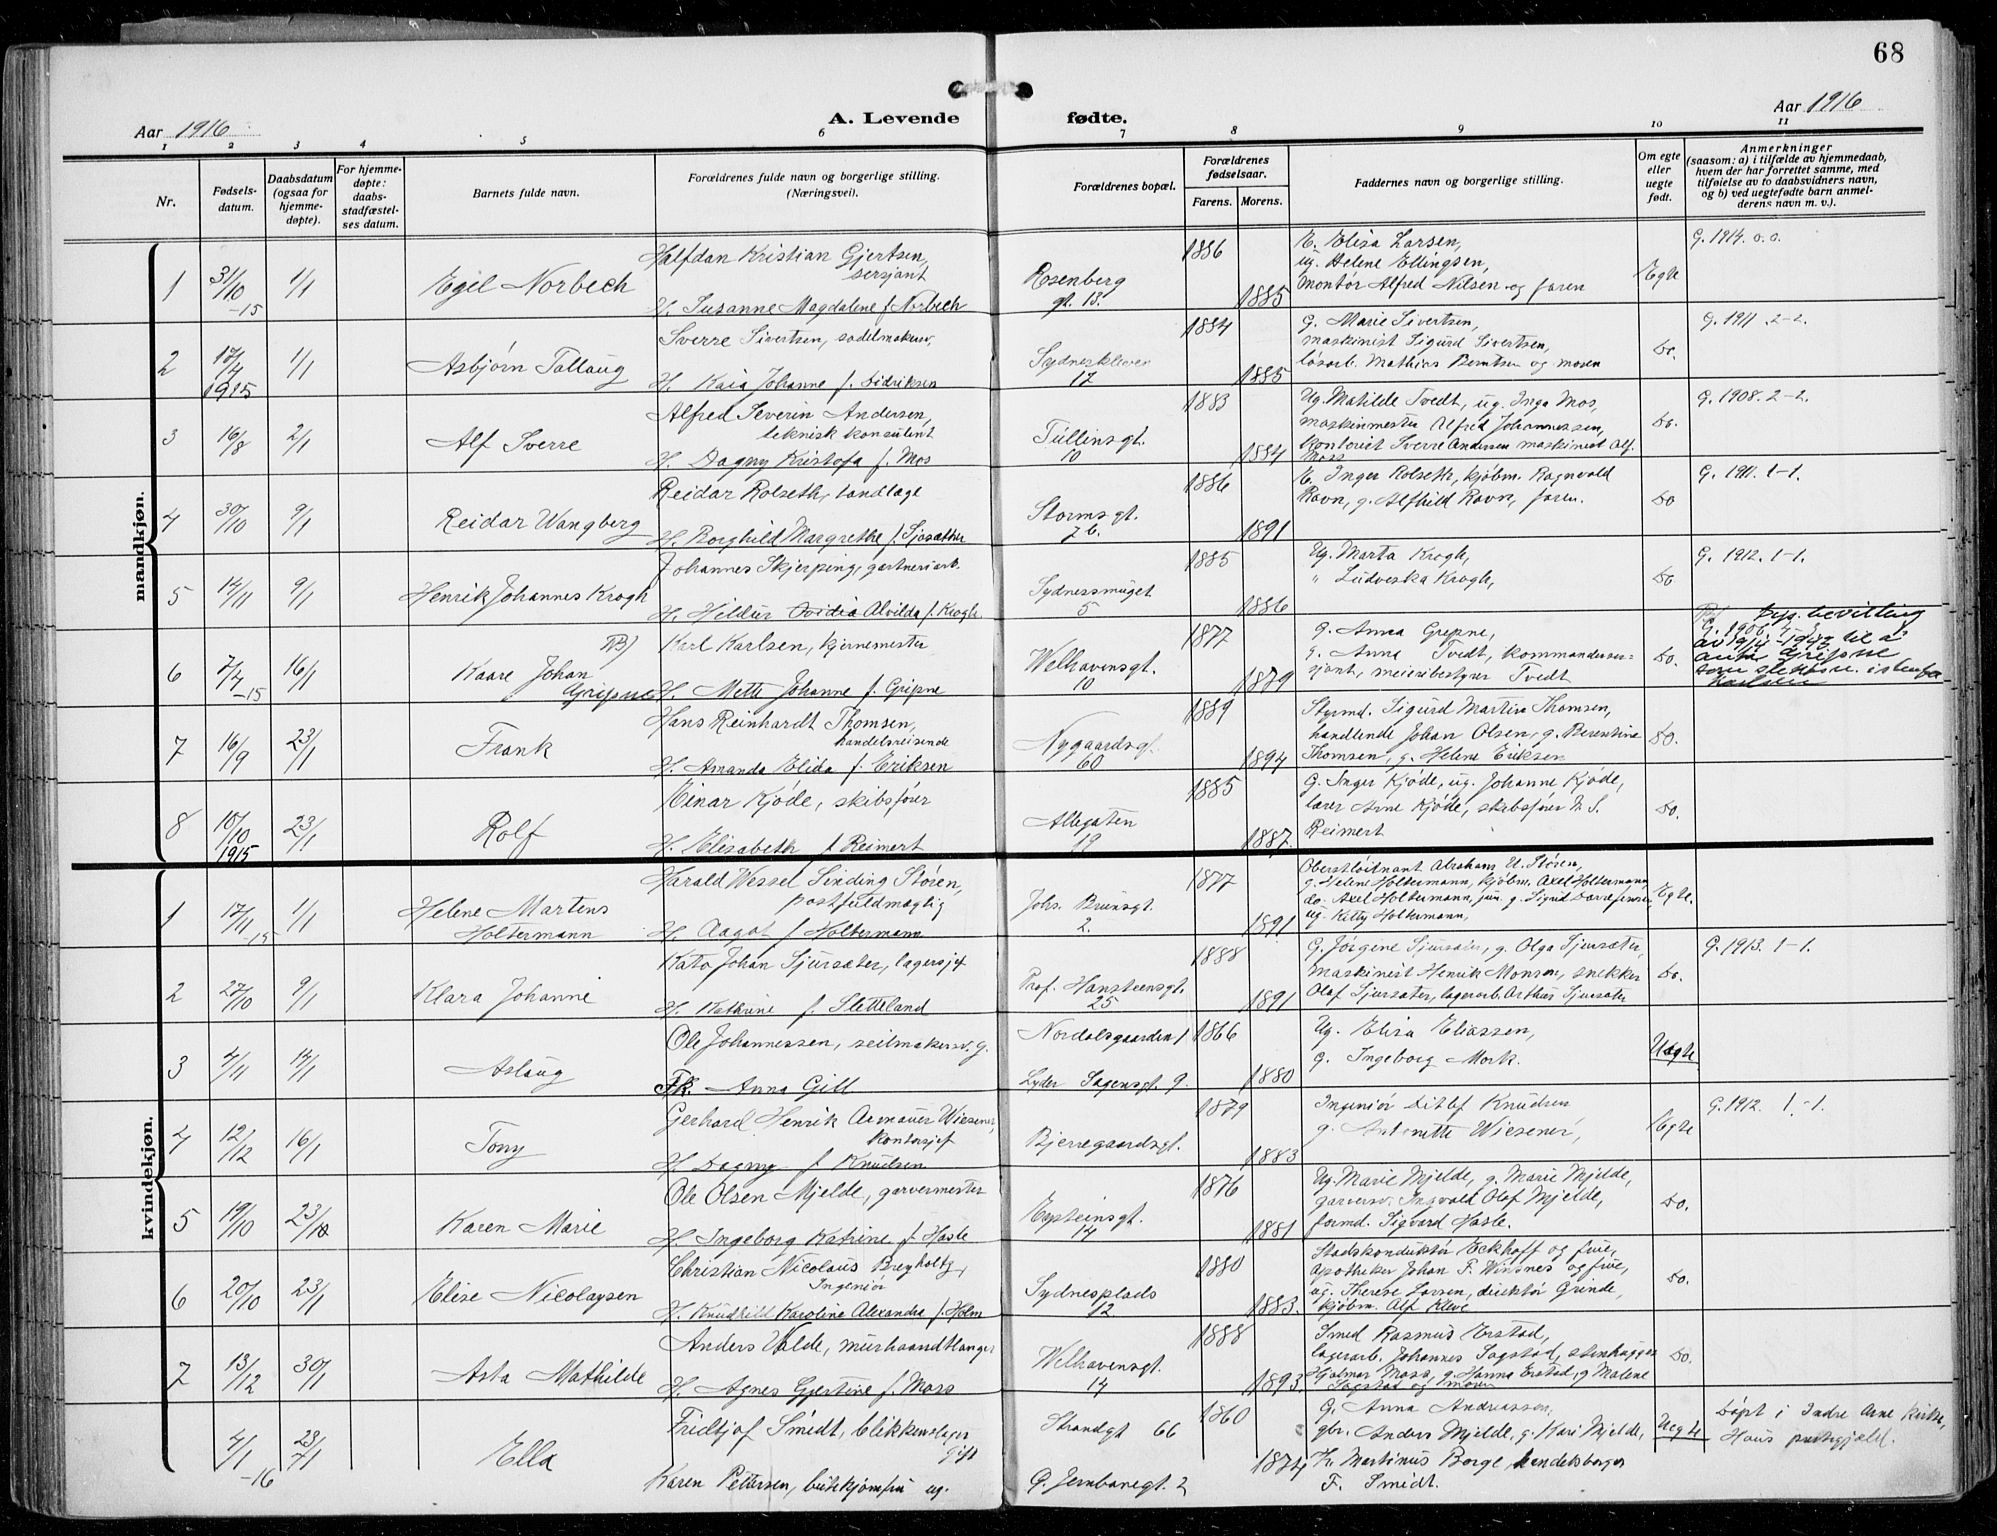 68
Aar 1916
A. Levende
fødte.
Aar 1916
1 2 3 4 5 6 7 8 9 10 11
Nr.
Fødsels-
datum.
Daabsdatum
(ogsaa for
hjemme-
døpte).
For hjemme-
døpte:
daabs-
stadfæstel-
ses datum.
Barnets fulde navn.
Forældrenes fulde navn og borgerlige stilling.
(Næringsvei).
Forældrenes bopæl.
Forældrenes
fødselsaar.
Farens. Morens.
Faddernes navn og borgerlige stilling.
Om egte
eller
uegte
født.
Anmerkninger
(saasom: a) i tilfælde av hjemmedaab,
hvem der har forrettet samme, med
tilføielse av to daabsvidners navn,
og b) ved uegtefødte barn anmel-
derens navn m. v.).
mandkjøn.
1 31/10 -15 1/1 Egil Norbech
Halfdan Kristian Gjertsen,
sersjant
H. Susanne Magdalene f. Norbech
Rosenberg
gt. 13.
1886 1885
E. Elisa Larsen,
ug. Helene Ellingsen,
montør Alfred Nilsen og faren
Egte
G. 1914. 0.0.
2 17/4 1915 1/1 Asbjørn Tallaug
Sverre Sivertsen, sadelmakersv.
H. Kaia Johanne f. Didriksen
Sydneskleven
17
1884 1885
G. Marie Sivertsen,
maskinist Sigurd Sivertsen,
løsarb. Mathias Berntsen og moren
Do.
G. 1911. 2-2.
3 16/8 2/1 Alf Sverre
Alfred Severin Andersen,
teknisk konsulent
H. Dagny Kristofa f. Mos
Tullinsgt.
10
1883 1884
Ug. Matilde Tvedt, ug. Inga Mos,
maskinmester Alfred Johannessen,
kontorist Sverre Andersen maskinist Alf.
Moss
Do.
G. 1908. 2-2.
4 30/10 9/1 Reidar Wangberg
Reidar Rolseth, tandlæge
H. Borghild Margrethe f. Sjøsæther
Stormsgt.
7b.
1886 1891
E. Inger Rolseth, kjøbm. Ragnvald
Ravn, g. Alfhild Ravn, faren.
Do
G. 1911. 1-1.
5 14/11 9/1 Henrik Johannes Krogh
Johannes Skjerping, gartneriarb.
H. Hildur Ovidia Alvilda f. Krogh.
Sydnessmuget
5
1885 1886
Ug. Marta Krogh,
" Ludveska Krogh,
Do
G. 1912. 1-1.
6 7/4 -15 16/1 Kaare Johan
Gripne
Karl Karlsen, kjernemester
H. Mette Johanne f. Gripne
Welhavensgt.
10
1877 1879
g. Anna Gripne,
g. Anna Tvedt, kommandersers-
jant, meieribestyrer Tvedt
Do.
bevilling
til å
Gripne
som slektsnavn
Karlsen
7 16/9 23/1 Frank
Hans Reinhardt Thomsen,
handelsreisende
H. Amanda Elida f. Eriksen
Nygaardsgt.
60
1889 1894
Styrmd. Sigurd Martin Thomsen,
handlende Johan Olsen, g. Berentine
Thomsen, g. Helene Eriksen
Do.
8 10/10 1915 23/1 Rolf
Einar Kjøde, skibsfører
H. Elisabeth f. Reimert
Allegaten
19
1885 1887.
G. Inger Kjøde, ug. Johanne Kjøde,
lærer Arne Kjøde, skibsfører N. S.
Reimert
Do.
kvindekjøn.
1 17/11 -15 1/1 Helene Martens
Holtermann
Harald Wessel Sinding Støren,
postfuldmægtig
H. Aagot f. Holtermann
Johs. Brunsgt.
2.
1877 1891
Oberstløitnant Abraham U. Støren,
g. Helene Holtermann, kjøbm. Axel Holtermann,
do. Axel Holtermann, jun. g. Sigrid
ug. Kitty Holtermann,
Egte.
2 27/10 9/1 Klara Johanne
Kato Johan Sjursæter, lagersjef
H. Kathrine f. Sletteland
Prof. Hansteensgt.
25
1888 1891
G. Jørgine Sjursæter, g. Olga Sjursæter,
maskinist Henrik Monsen, snekker
Olaf Sjursæter, lagerarb. Arthur Sjursæter
Do.
G. 1913. 1-1.
3 4/11 14/1 Aslaug
Ole Johannessen, seilmakersv. g.
Fk. Anna Gill
Nordalsgaarden 1
Lyder Sagensgt. 9.
1866 1880
Ug. Elisa Eliassen,
g. Ingeborg Mork.
Uegte
4 12/12 16/1 Tony
Gerhard Henrik Armauer Wiesener,
kontorsjef
H. Dagny f. Knudsen
Bjerregaardsgt.
1879 1883
Ingeniør Ditlef Knudsen
g. Antonette Wiesener,
Egte
G. 1912. 1.-1.
5 19/10 23/10 Karen Marie
Ole Olsen Mjelde, garvermester
H. Ingeborg Katrine f. Hasle
Exsteinsgt.
14
1876 1881
Ug. Marie Mjelde, g. Marie Mjelde,
garversv. Ingvald Olaf Mjelde,
formd. Sigvard Hasle.
Do.
6 20/10 23/1 Elise Nicolaysen
Christian Nicolaus Breyholtz,
Ingeniør
H. Knudhild Karoline Alexandra f. Holm
Sydnesplads
12
1880 1883.
Stadskonduktør Eckhoff og frue,
apotheker Johan F. Winsnes og frue,
ug. Therese Larsen, direktør Grinde,
kjøbm. Alf Kleve
Do.
7 13/12 30/1 Asta Mathilde
Anders Valde, murhaandtlanger
H. Agnes Gjertine f. Moss
Welhavensgt.
14
1888 1893
Smed Rasmus Erstad,
lagerarb. Johannes Sagstad, stenhugger
Hjalmar Moss, g. Hanna Erstad, g Malene
Sagstad og moren
Do.
4/1 -16 23/1 Ella
Fridtjof Smidt, blikkenslager
gift
Karen Pettersen, butikjomfru ug.
Strandgt 66
G. Jernbanegt. 2
1860 1874
G. Anna Andreassen,
gbr. Anders Mjelde, g. Kari Mjelde,
K. Martinus Borge, handelsborger
F. Smidt.
Uegte
Døpt i Indre Arne kirke,
Haus prestegjæld.